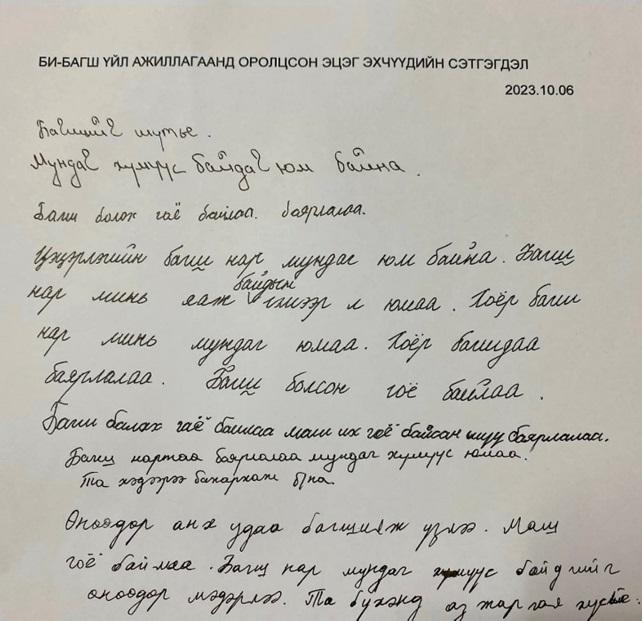 БИ-БАГШ ҮЙЛ АЖИЛЛАГААНД ОРОЛЦСОН ЭЦЭГ ЭХЧҮҮДИЙН СЭТГЭГДЭЛ
2023.10.06
Багшийг шүтье.
Мундаг хүмүүс байдаг юм байна.
Багш болох гоё байлаа. баярлалаа.
Цэцэрлэгийн багш нар мундаг юм байна. Багш
байдын
нар минь яаж л юмаа. Хоёр багш
нар минь мундаг юмаа. Хоёр багшдаа
баярлалаа. Багш болсон гоё байлаа.
Багш болох гоё байлаа маш их гоё байсан шүү баярлалаа.
Багш нартаа баярлалаа мундаг хүмүүс юмаа.
Та хэдээрээ бахархаж б/на.
Өнөөдөр анх удаа багшилж үзлээ. Маш
гоё байлаа. Багш нар мундаг хүмүүс байдгийг
өнөөдөр мэдэрлээ. Та бүхэнд аз жаргал хүсье.